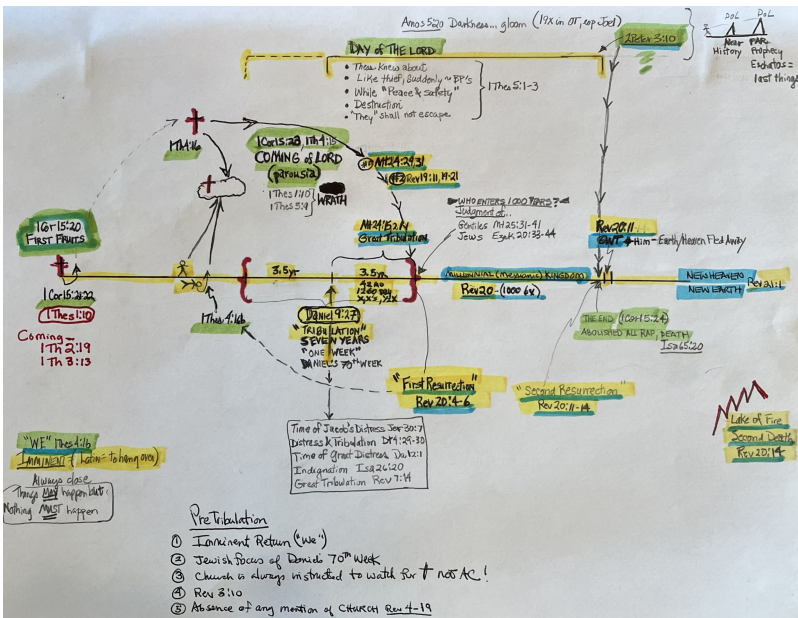 Amos 5:20 Darkness... gloom (19x in OT, esp Joel)
DAY OF THE LORD
2Peter 3:10
DOL
DOL
Near
History
FAR
Prophecy
Eschatos =
last things
• Thess Knew about
• Like thief, Suddenly ~ BP's
• While "Peace & Safety"
• Destruction
• "They" shall not escape
1Thes 5:1-3
1Th 4:16
1Cor 15:23, 1Th 4:15
COMING of LORD
(parousia)
1Thes 1:10
1Thes 5:9
WRATH
#1 Mt 24:29,31
#2 Rev 19:11, 19-21
WHO ENTERS 1000 YEARS?
Judgment of...
Gentiles Mt 25:31-41
Jews Ezek 20:33-44
1Cor 15:20
FIRST FRUITS
Mt 24:15, 21
Great Tribulation
Rev 20:11
GWT Him - Earth/Heaven Fled Away
3.5yr
3.5yr
42 mo
1260 day
MILLENNIAL (Messianic) KINGDOM
Rev 20 - (1000 6x)
NEW HEAVEN
NEW EARTH
Rev 21:1
1Cor 15:21,22
1Thes 1:10
Coming -
1Th 2:19
1Th 3:13
1Thes 4:16b
Daniel 9:27
"TRIBULATION"
SEVEN YEARS
"ONE WEEK"
DANIEL'S 70th WEEK
THE END (1Cor 15:24)
ABOLISHED ALL RAP, DEATH
Isa 65:20
"First Resurrection"
Rev 20:4-6
"Second Resurrection"
Rev 20:11-14
Lake of Fire
Second Death
Rev 20:14
Time of Jacob's Distress Jer 30:7
Distress & Tribulation Dt 4:29-30
Time of Great Distress Da 12:1
Indignation Isa 26:20
Great Tribulation Rev 7:14
"WE" 1Thes 4:16
IMMINENT (Latin = to hang over)
Always close
Things MAY happen but
Nothing MUST happen
PreTribulation
① Imminent Return ("We")
② Jewish focus of Daniel's 70th WEEK
③ Church is always instructed to watch for † not AC!
④ Rev 3:10
⑤ Absence of any mention of CHURCH Rev 4-19